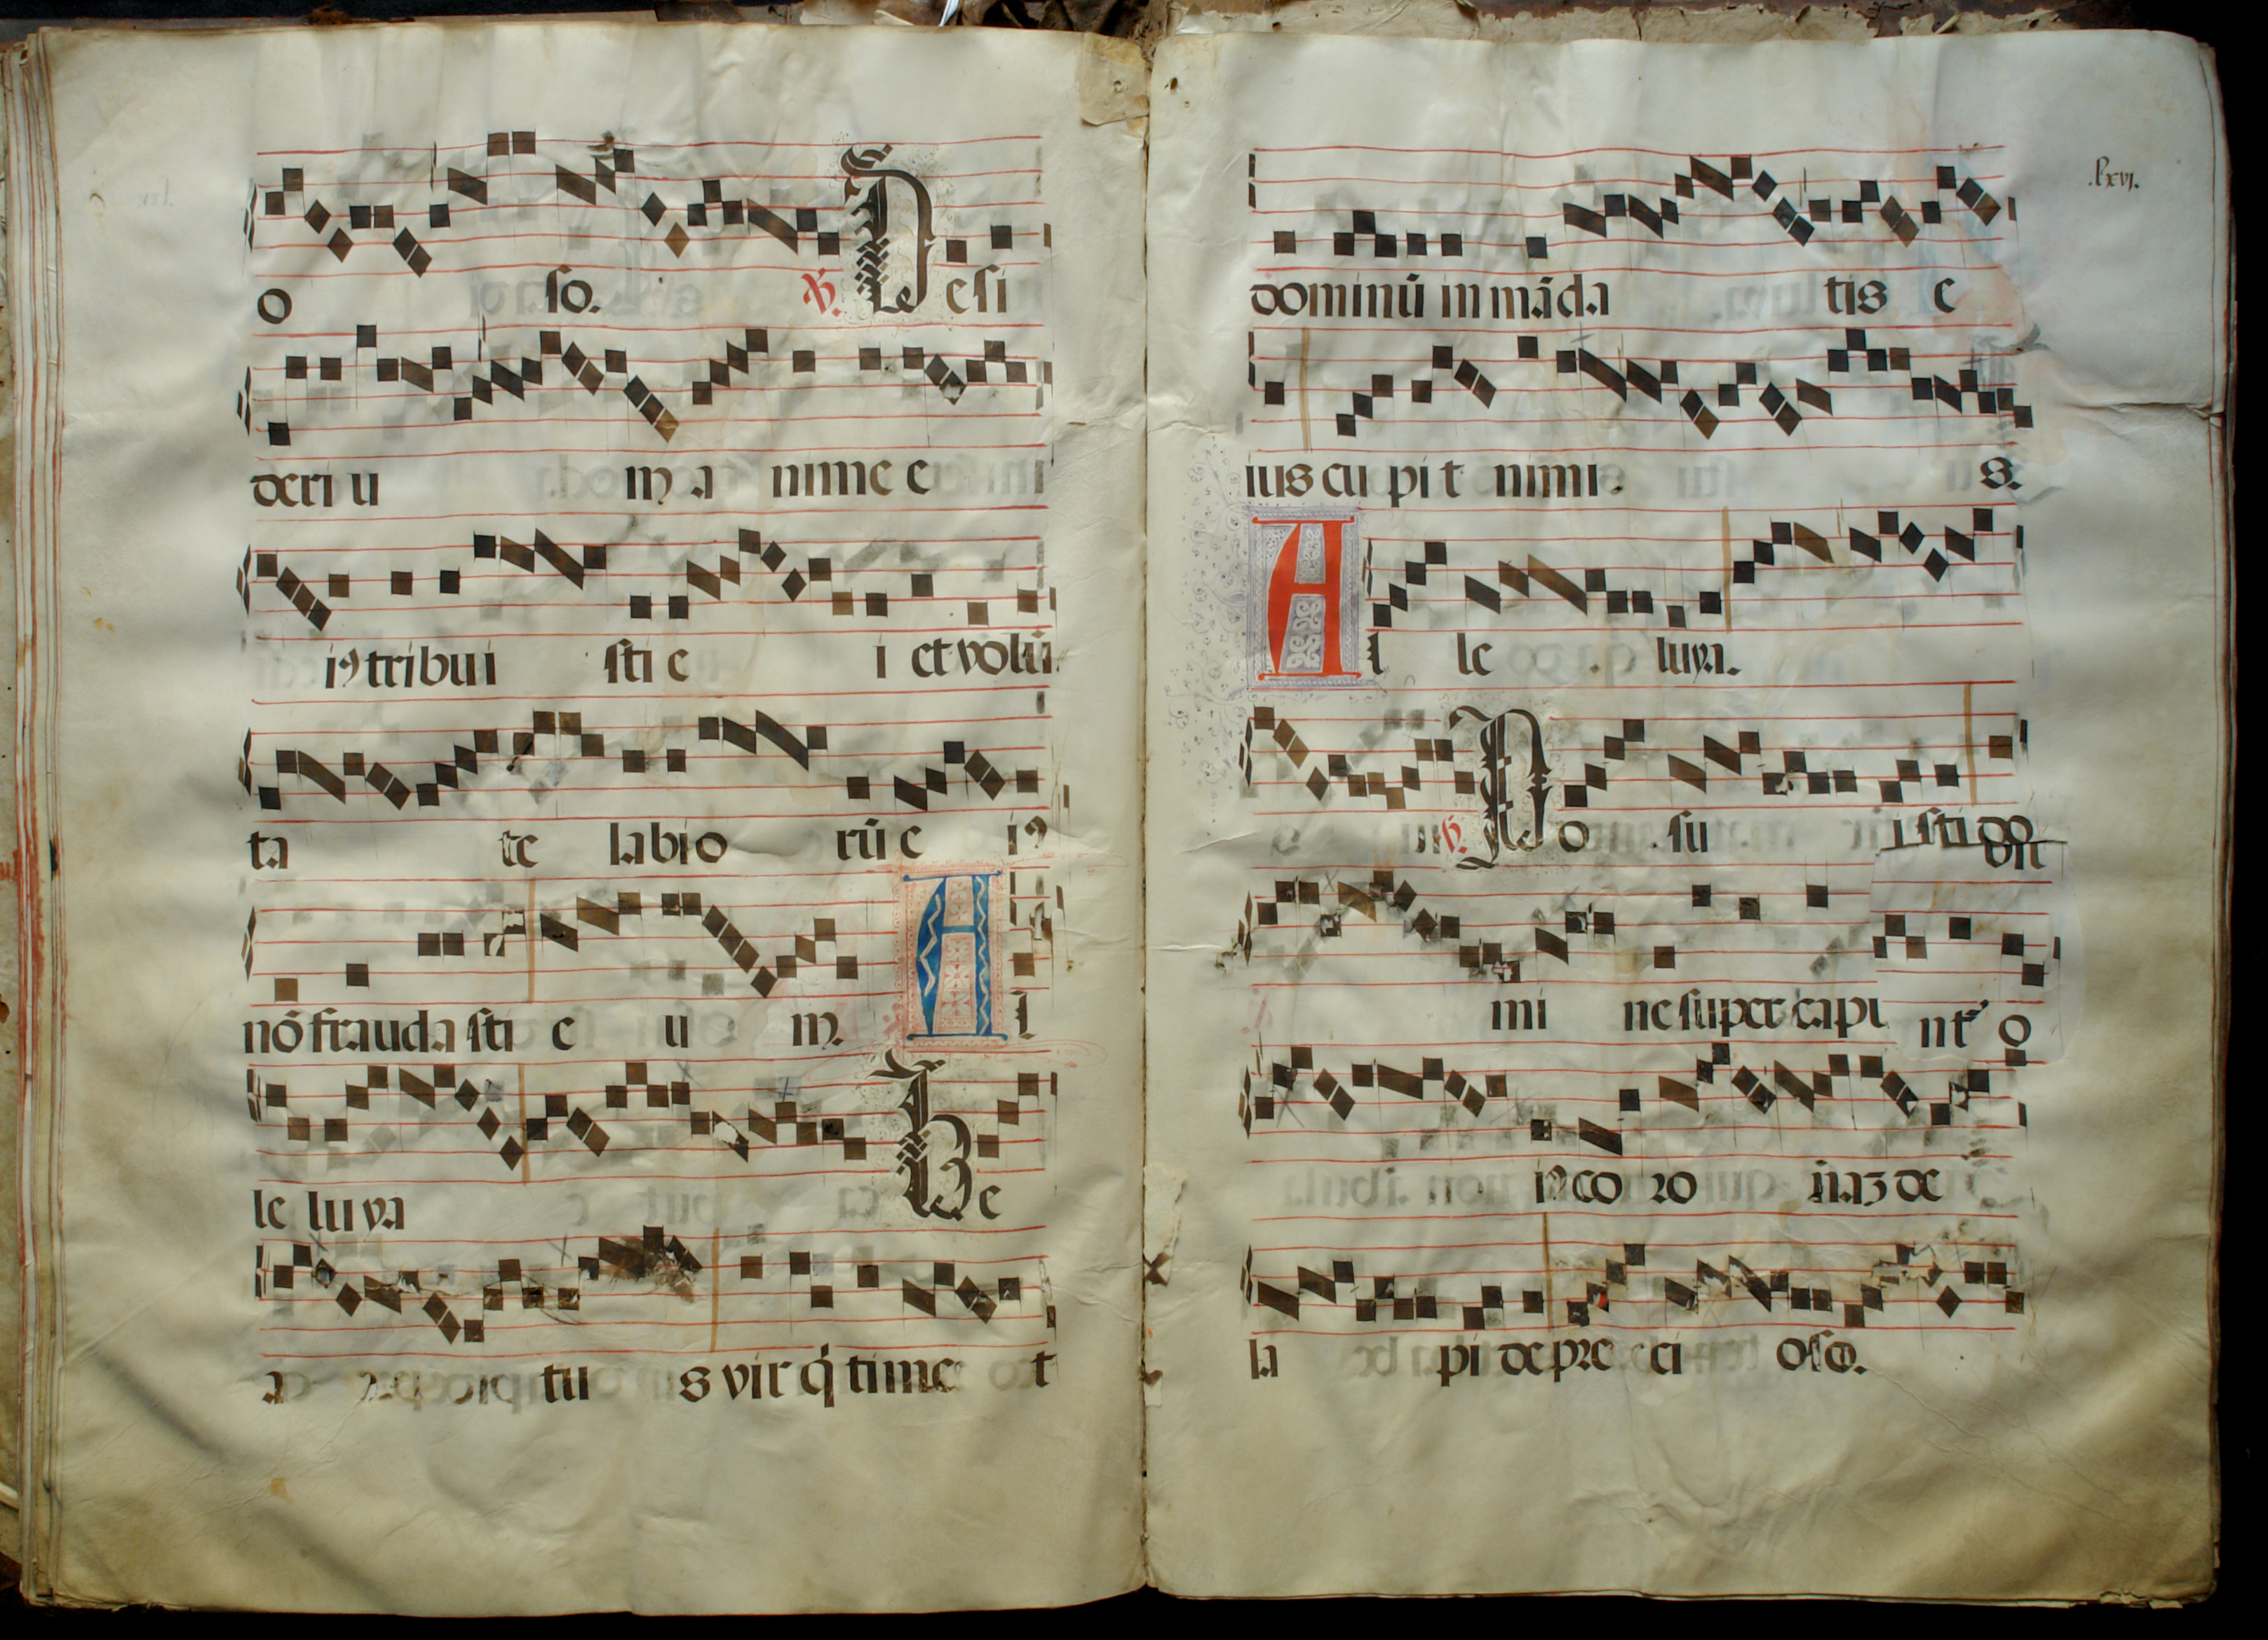 o so. ℟. Desi
deri u m a nime e
i⁹ tribui sti e i et volū
ta te labio rū e i⁹
nō frauda sti e u m. Al
le luya Be
a tu s vir q̇ time t
.lxvi.
dominū in māda tis e
ius cu pi t nimi s.
Al le luya.
℟. Po su isti do
mi ne super capu
nt o
i⁹ co ro naʒ de
la pi de pre ci oso.